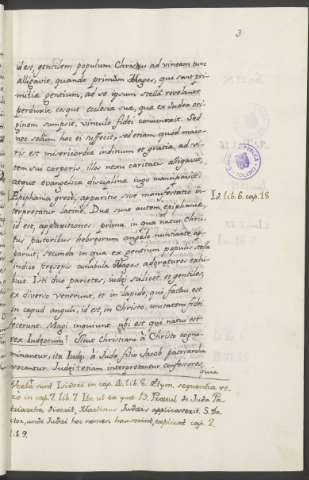 3
id est, gentilem populum Christus ad vineam tunc
alligavit, quando primùm Magos, qui sunt pri-
mitiæ gentium, ad se ipsum stella revelante
perduxit eosque ecclesiæ suæ, quæ ex Judea ori-
ginem sumpsit, vinculo fidei connexuit. Sed
nec solùm hoc ei suffecit, sed etiam quod maio-
ris est misericordiæ indicium et gratiæ, ad vi-
tem sui corporis, illos nexu caritatis alligavit,
atque evangelica disciplina iugo mancipavit.
Epiphania græcè, apparitio sive manifestatio in-
terpretatur latinè. Duæ sunt autem epiphaniæ, Id. lib. 6. cap. 18
id est, apparitiones: prima, in qua natus Chris-
tus pastoribus hebreorum angelo nuntiante ap-
paruit; secunda in qua ex gentium populis stella
indice præsepis cunabula Magos adoraturos exhi-
buit. Isti duo parietes, iudei scilicet et gentiles,
ex diverso venerunt, et in lapide, qui factus est
in caput anguli, id est, in Christo, unitatem fidei
fecerunt. Magi inquiunt ubi est qui natus est
rex Judeorum? Sicut Christiani à Christo cogno-
minantur, ita Judei à Juda filio Jacob patriarcha
vocantur. Judei tamen interpretantur confessores,
quia
Verba sunt Isidori in cap. lib. 8. Etym. sequentia ve-
rò in cap. 7. lib. 7. Ita ut ea quæ 13. de Juda Pa-
triarcha dixerit, Martinus Judæis applicaverit. S. Doc-
tor, unde Judei hoc nomen hauserint, explicat cap. 2
lib. 9.